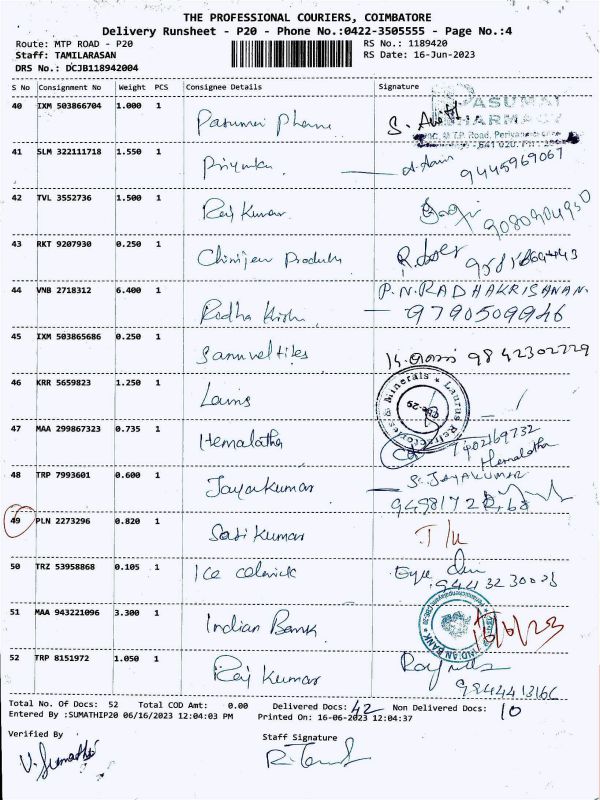 THE PROFESSIONAL COURIERS, COIMBATORE
Delivery Runsheet - P20 - Phone No.:0422-3505555 - Page No.:4
Route: MTP ROAD - P20 RS No.: 1189420
Staff: TAMILARASAN RS Date: 16-Jun-2023
DRS No.: DCJB118942004
S No Consignment No Weight PCS Consignee Details Signature
40 IXM 503866704 1.000 1 Pasumai Pharma
PASUMAI
PHARMACY
M.T.P. Road,
41 SLM 322111718 1.550 1 Priyanka 9445969067
42 TVL 3552736 1.500 1 Raj Kumar 9080904930
43 RKT 9207930 0.250 1 Products
44 VNB 2718312 6.400 1 Radha Krish P.N.RADHAKRISANAN.
9790509946
45 IXM 503865686 0.250 1 Samuveltiles 9842302729
46 KRR 5659823 1.250 1
Minerals Laurus Refractories &
47 MAA 299867323 0.735 1 Hemalatha 7402169732
Hemalatha
48 TRP 7993601 0.600 1 Jayakumar S. JAYAKUMAR
49 PLN 2273296 0.820 1 Sasi Kumar
50 TRZ 53958868 0.105 1 Ice
51 MAA 943221096 3.300 1 Indian Bank
INDIAN BANK
16/6/23
52 TRP 8151972 1.050 1 Raj Kumar
Total No. Of Docs: 52 Total COD Amt: 0.00 Delivered Docs: 42 Non Delivered Docs: 10
Entered By :SUMATHIP20 06/16/2023 12:04:03 PM Printed On: 16-06-2023 12:04:37
Verified By Staff Signature
V. Sumathi